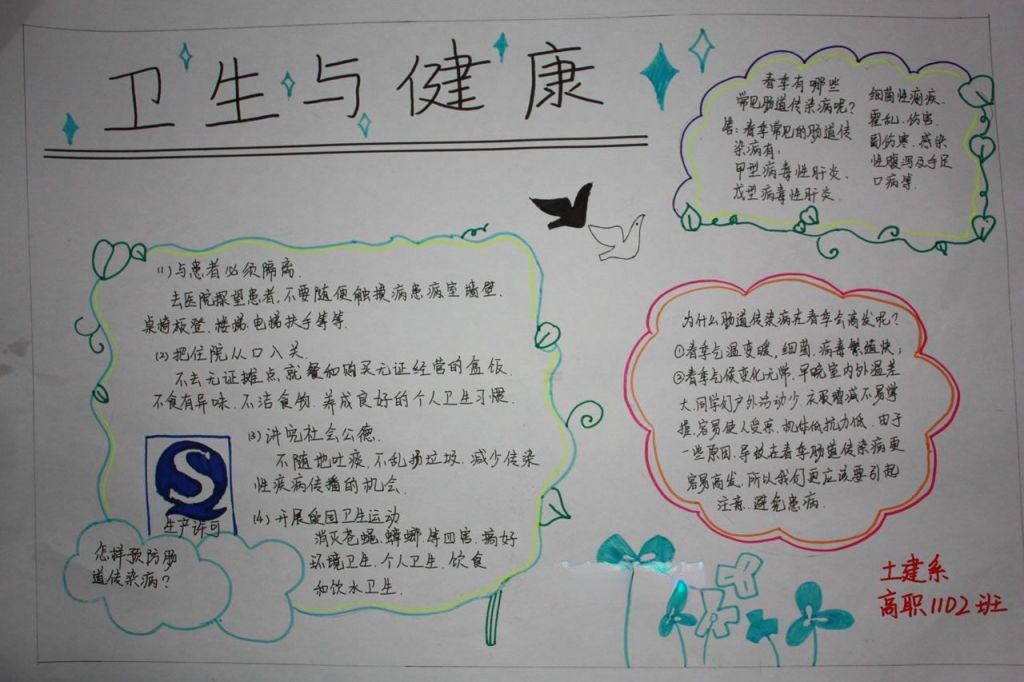 卫生与健康
春季有哪些
常见肠道传染病呢？
答：春季常见的肠道传
染病有：
甲型病毒性肝炎、
戊型病毒性肝炎、
细菌性痢疾、
霍乱、伤害、
副伤寒、感染
性腹泻及手足
口病等.
(1)与患者必须隔离.
去医院探望患者,不要随便触摸病患病室墙壁.
桌椅板登、楼梯、电梯扶手等等.
(2)把住院从口入关.
不去无证摊点就餐和购买无证经营的盒饭.
不食有异味、不洁食物.养成良好的个人卫生习惯.
(3)讲究社会公德.
不随地吐痰,不乱扔垃圾.减少传染
性疾病传播的机会.
(4)开展爱国卫生运动
消灭苍蝇,蟑螂,等四害.搞好
环境卫生、个人卫生、饮食
和饮水卫生.
S
生产许可
怎样预防肠
道传染病？
为什么肠道传染病在春季会高发呢？
①春季气温变暖,细菌、病毒繁殖快;
②春季气候变化无常、早晚室内外温差
大,同学们户外活动少,衣服增减不易掌
握,容易使人受凉、机体低抗力低、由于
一些原因、导致在春季肠道传染病更
容易高发,所以我们更应该要引起
注意、避免患病.
土建系
高职1102班